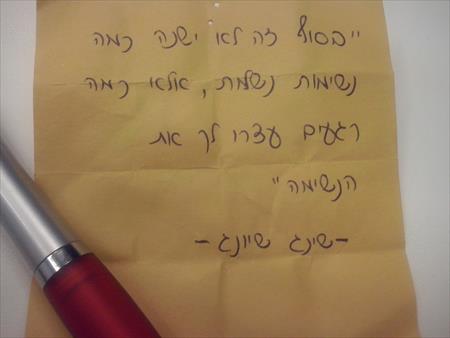 "בסוף זה לא ישנה כמה
נשימות נשמת, אלא כמה
רגעים עצרו לך את
הנשימה"
-שינג שיונג-